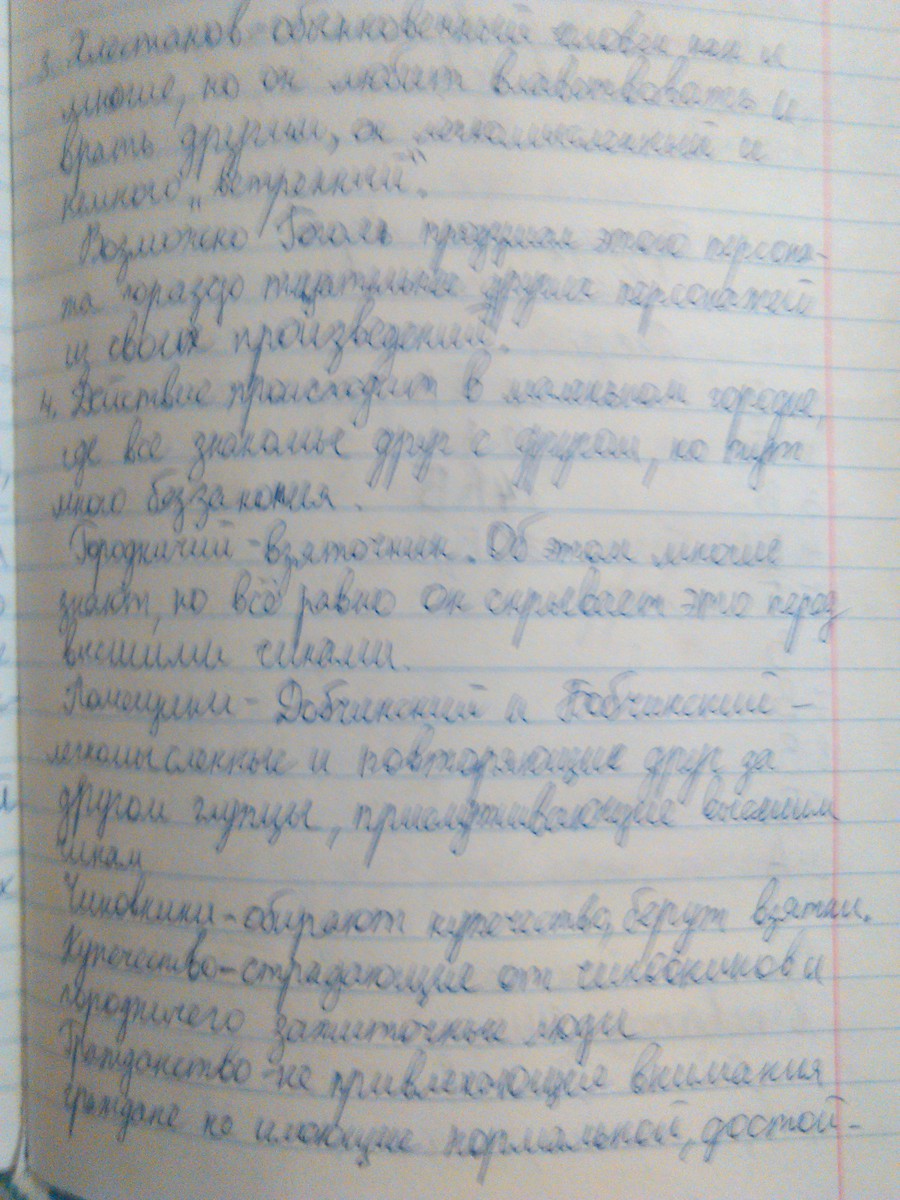 3. Хлестаков - обыкновенный человек как и
многие, но он любит властвовать и
врать другим, он легкомысленный и
немного "ветренный".
Возможно Гоголь продумал этого персона-
жа гораздо тщательнее других персонажей
из своих произведений.
4. Действие происходит в маленьком городке,
где все знакомы друг с другом, но
много беззакония.
Городничий - взяточник. Об этом многие
знают, но всё равно он скрывает это перед
высшими чинами.
Помещики - Добчинский и Бобчинский -
легкомысленные и повторяющие друг за
другом глупцы, прислуживающие высшим
чинам
Чиновники - обирают купечество, берут взятки.
Купечество - страдающие от чиновников и
городничего зажиточные люди
Гражданство - не привлекающие внимания
граждане не имеющие нормальной, достой-